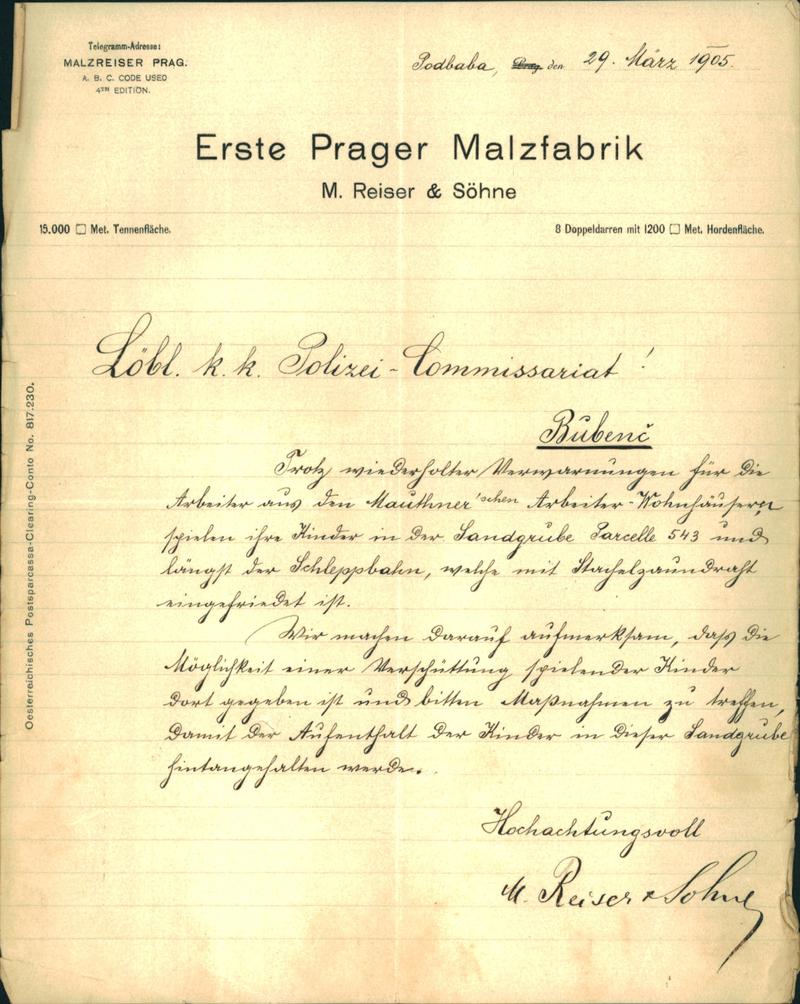 Telegramm-Adresse:
MALZREISER PRAG.
A. B. C. CODE USED
4TH EDITION.
Podbaba, Prag den 29. März 1905.
Erste Prager Malzfabrik
M. Reiser & Söhne
15.000 □ Met. Tennenfläche.
8 Doppeldarren mit 1200 □ Met. Hordenfläche.
Oesterreichisches Postsparcassa-Clearing-Conto No. 817.230.
Löbl. k. k. Polizei-Commissariat!
Bubenč
Trotz wiederholter Verwarnungen für die
Arbeiter aus den Mauthner'schen Arbeiter-Wohnhäusern
spielen ihre Kinder in der Sandgrube Parcelle 543 und
längst der Schleppbahn, welche mit Stachelzaundraht
eingefriedet ist.
Wir machen darauf aufmerksam, dass die
Möglichkeit einer Verschüttung spielender Kinder
dort gegeben ist und bitten Maßnahmen zu treffen,
damit der Aufenthalt der Kinder in dieser Sandgrube
hintangehalten werde.
Hochachtungsvoll
M. Reiser & Söhne